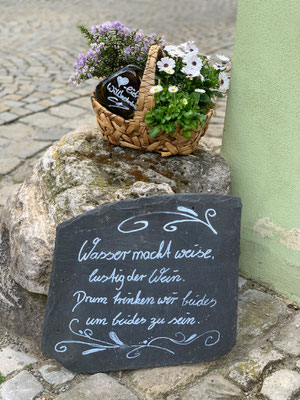 ♥lich
Willkommen
Wasser macht weise,
lustig der Wein.
Drum trinken wir beides
um beides zu sein.